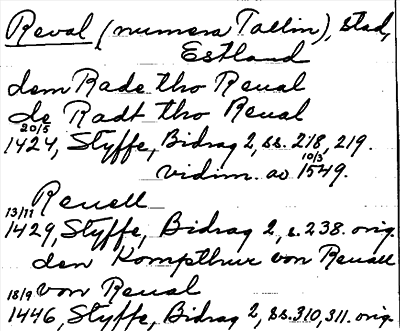 Reval (numera Tallin), stad,
Estland
dem Rade tho Reual
de Radt tho Reual
20/5
1424, Styffe, Bidrag 2, ss. 218, 219.
10/3
vidim. av 1549.
Reuell
13/11
1429, Styffe, Bidrag 2, s. 238. orig.
den Kompthur von Reuall
18/9 von Reual
1446, Styffe, Bidrag 2, ss. 310, 311. orig.